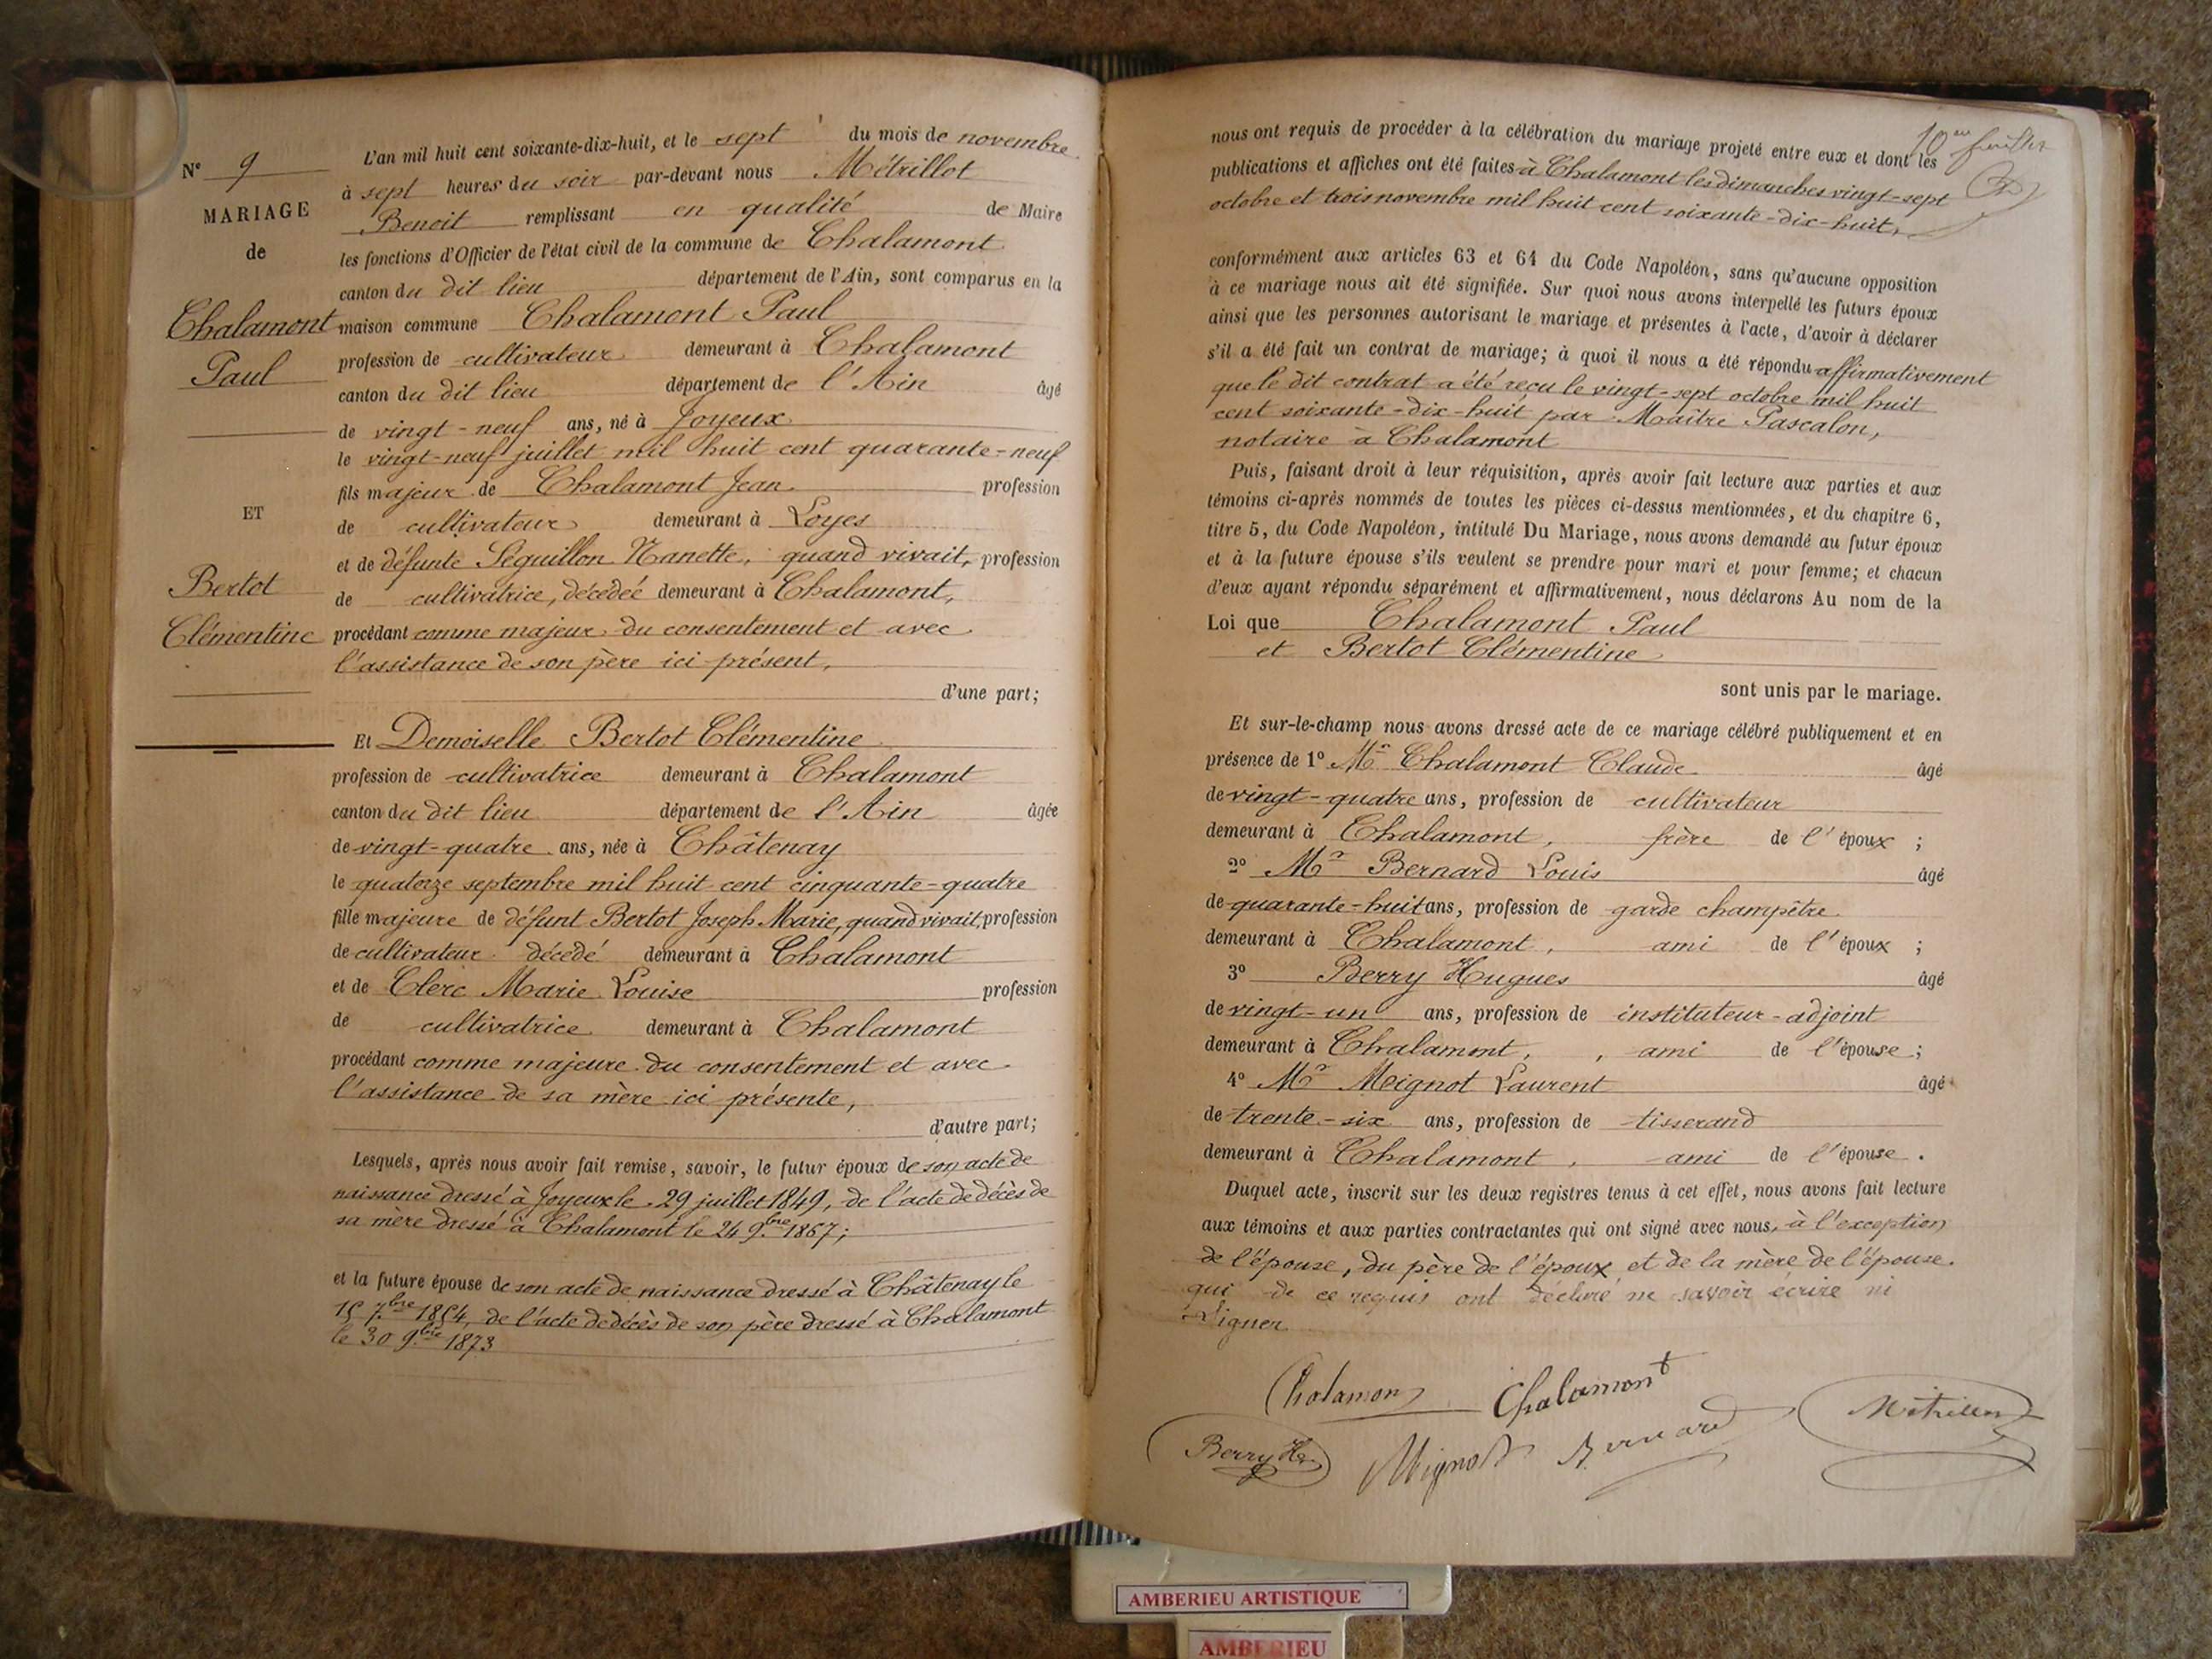 N° 9
MARIAGE
de
Chalamont
Paul
ET
Bertot
Clémentine
L'an mil huit cent soixante-dix-huit, et le sept du mois de novembre
à sept heures du soir par-devant nous Métrillot
Benoit remplissant en qualité de Maire
les fonctions d'Officier de l'état civil de la commune de Chalamont
canton du dit lieu département de l'Ain, sont comparus en la
maison commune Chalamont Paul
profession de cultivateur demeurant à Chalamont
canton du dit lieu département de l'Ain âgé
de vingt-neuf ans, né à Joyeux
le vingt-neuf juillet mil huit cent quarante-neuf
fils majeur de Chalamont Jean profession
de cultivateur demeurant à Loyes
et de défunte Séquillon Nanette, quand vivait, profession
de cultivatrice, décédée demeurant à Chalamont,
procédant comme majeur du consentement et avec
l'assistance de son père ici présent,
d'une part;
Et Demoiselle Bertot Clémentine
profession de cultivatrice demeurant à Chalamont
canton du dit lieu département de l'Ain âgée
de vingt-quatre ans, née à Châtenay
le quatorze septembre mil huit cent cinquante-quatre
fille majeure de défunt Bertot Joseph Marie, quand vivait, profession
de cultivateur décédé demeurant à Chalamont
et de Clerc Marie Louise profession
de cultivatrice demeurant à Chalamont
procédant comme majeure du consentement et avec
l'assistance de sa mère ici présente,
d'autre part;
Lesquels, après nous avoir fait remise, savoir, le futur époux de son acte de
naissance dressé à Joyeux le 29 juillet 1849, de l'acte de décès de
sa mère dressé à Chalamont le 24 9bre 1867;
et la future épouse de son acte de naissance dressé à Châtenay le
15 7bre 1854, de l'acte de décès de son père dressé à Chalamont
le 30 9bre 1873
10eme feuillet
nous ont requis de procéder à la célébration du mariage projeté entre eux et dont les
publications et affiches ont été faites à Chalamont les dimanches vingt-sept
octobre et trois novembre mil huit cent soixante-dix-huit,
conformément aux articles 63 et 64 du Code Napoléon, sans qu'aucune opposition
à ce mariage nous ait été signifiée. Sur quoi nous avons interpellé les futurs époux
ainsi que les personnes autorisant le mariage et présentes à l'acte, d'avoir à déclarer
s'il a été fait un contrat de mariage; à quoi il nous a été répondu affirmativement
que le dit contrat a été reçu le vingt-sept octobre mil huit
cent soixante-dix-huit par Maître Pascalon,
notaire à Chalamont
Puis, faisant droit à leur réquisition, après avoir fait lecture aux parties et aux
témoins ci-après nommés de toutes les pièces ci-dessus mentionnées, et du chapitre 6,
titre 5, du Code Napoléon, intitulé Du Mariage, nous avons demandé au futur époux
et à la future épouse s'ils veulent se prendre pour mari et pour femme; et chacun
d'eux ayant répondu séparément et affirmativement, nous déclarons Au nom de la
Loi que Chalamont Paul
et Bertot Clémentine
sont unis par le mariage.
Et sur-le-champ nous avons dressé acte de ce mariage célébré publiquement et en
présence de 1° Mr Chalamont Claude âgé
de vingt-quatre ans, profession de cultivateur
demeurant à Chalamont, frère de l'époux ;
2° Mr Bernard Louis âgé
de quarante-huit ans, profession de garde champêtre
demeurant à Chalamont, ami de l'époux ;
3° Berry Hugues âgé
de vingt-un ans, profession de instituteur-adjoint
demeurant à Chalamont, , ami de l'épouse ;
4° Mr Meignot Laurent âgé
de trente-six ans, profession de tisserand
demeurant à Chalamont, ami de l'épouse .
Duquel acte, inscrit sur les deux registres tenus à cet effet, nous avons fait lecture
aux témoins et aux parties contractantes qui ont signé avec nous, à l'exception
de l'épouse, du père de l'époux et de la mère de l'épouse.
qui de ce requis ont déclaré ne savoir écrire ni
signer
Chalamon Chalamont
Berry H Mignot Bernard Métrillot
AMBERIEU ARTISTIQUE
AMBERIEU